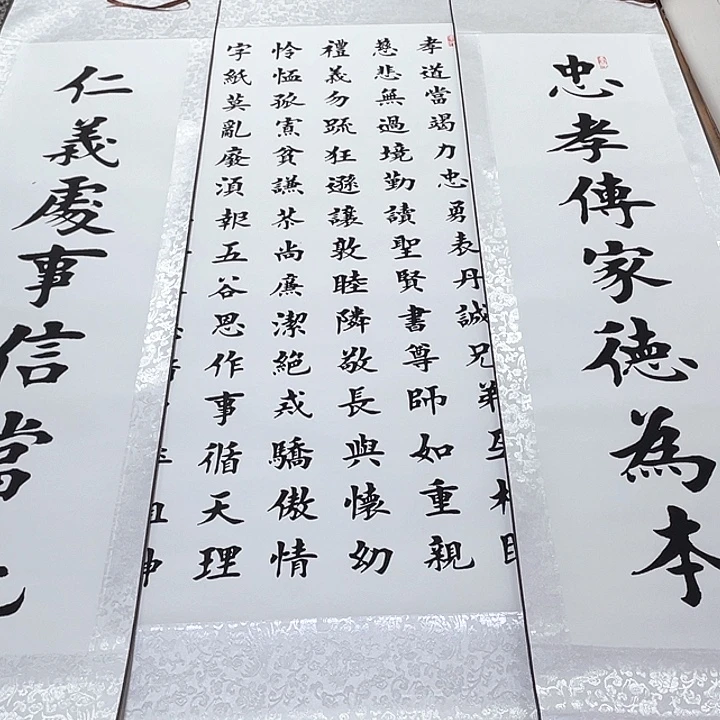 忠孝傳家德為本
孝道當竭力忠勇表丹誠兄弟互相
慈悲無過境勤讀聖賢書尊師如重親
禮義勿疏狂遜讓敦睦隣敬長與懷幼
怜恤孤寡貧謙恭尚廉潔絕戎驕傲情
字紙莫亂廢須報五谷恩作事循天理
仁義處事信當